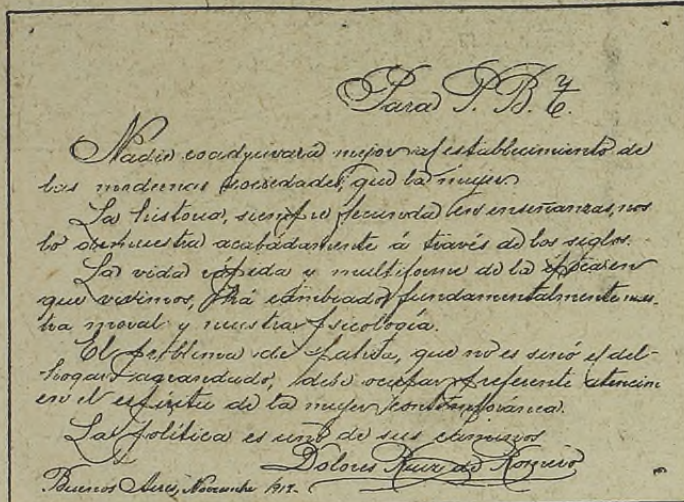 Para P. B. T.
Nadie coadyuvará mejor al establecimiento de
las modernas sociedades, que la mujer.
La historia, siempre fecunda en enseñanzas, nos
lo demuestra acabádamente á través de los siglos.
La vida rápida y multiforme de la época en
que vivimos, há cambiado fundamentalmente nues-
tra moral y nuestra psicología.
El problema de patria, que no es sinó el del
hogar agrandado, debe ocupar preferente atencion
en el espíritu de la mujer contemporánea.
La política es uno de sus caminos
Dolores Ruiz de Romero
Buenos Aires, Noviembre 1912.